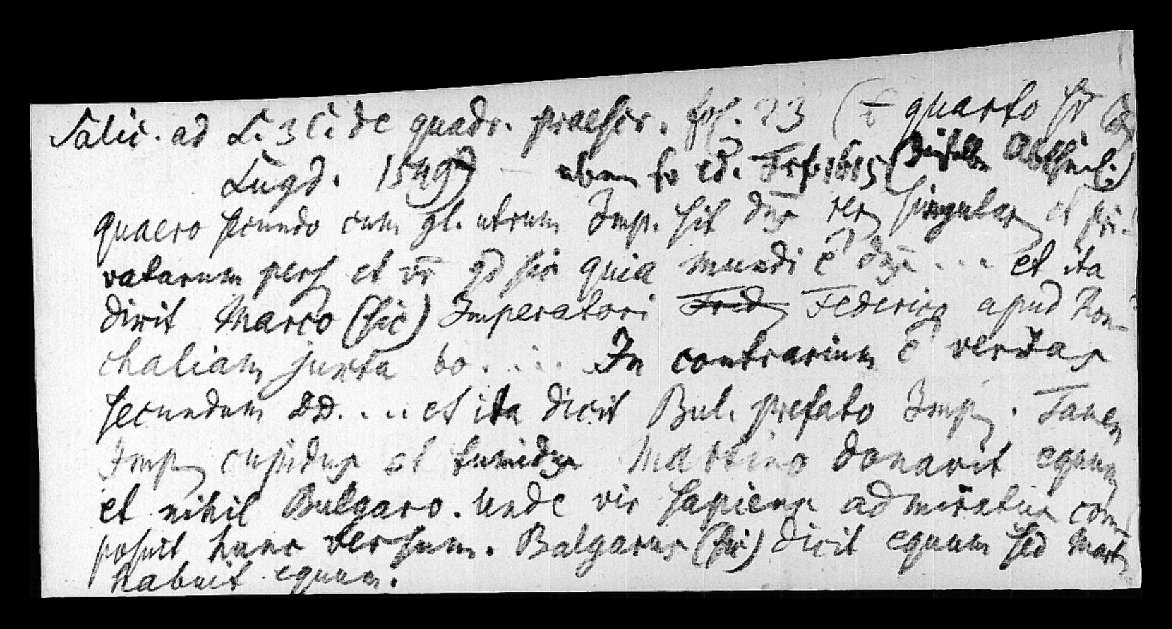 Salic. ad L. 3 C. de quadr. praescr. fol. 73 (quarto
Lugd. 1549) — eben so ed. Frf. 1615 (
quaero secundo cum gl. utrum Imp. sit dns rer singular et pri-
vatarum pers et vr qd sic quia mundi e dns ... et ita
dixit Marco (sic) Imperatori Federico apud Ron-
chaliam juxta bo.... In contrarium e veritas
secundum DD.... et ita dicit Bul. prefato Imp. Tamen
Imp cupidus et tumidus Martino donavit equum
et nihil Bulgaro. Unde vir sapiens admiratus com-
posuit hunc versum. Balgarus (sic) dicit equum sed Mart
habuit equum.